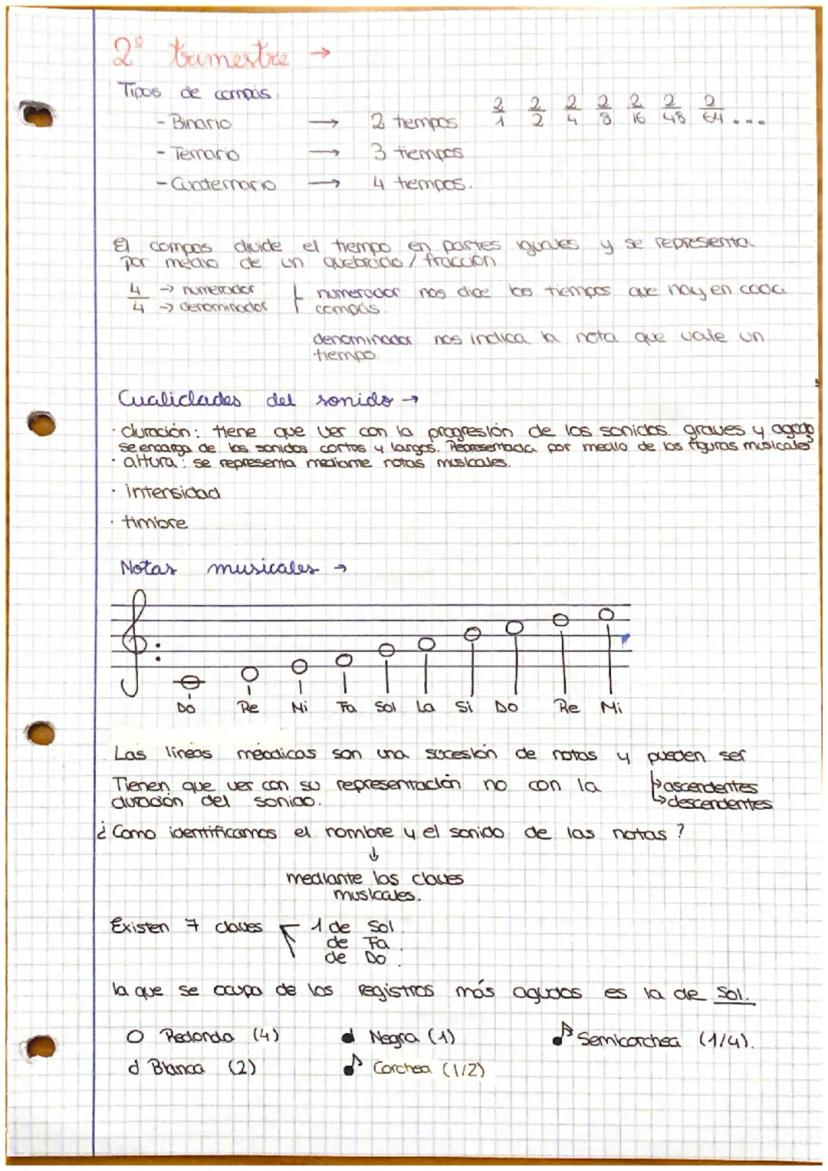 2º trimestre →
Tipos de compás.
- Binario → 2 tiempos 2/1 2/2 2/4 2/8 2/16 2/48 2/64 ...
- Ternario → 3 tiempos
- Cuaternario → 4 tiempos.
El compás divide el tiempo en partes iguales y se representa
por medio de un quebrado / fracción
4 → numerador
4 → denominador
numerador nos dice los tiempos que hay en cada
compás.
denominador nos indica la nota que vale un
tiempo
Cualidades del sonido →
· duración: tiene que ver con la progresión de los sonidos. graves y agudo
se encarga de los sonidos cortos y largos. Representada por medio de las figuras musicales
· altura: se representa mediante notas musicales.
· intensidad
· timbre
Notas musicales →
Do Re Mi Fa Sol La Si Do Re Mi
Las líneas melódicas son una sucesión de notas y pueden ser
→ ascendentes
→ descendentes
Tienen que ver con su representación no con la
duración del sonido.
¿Como identificamos el nombre y el sonido de las notas?
↓
mediante las claves
musicales.
Existen 7 claves
1 de Sol
de Fa.
de Do.
la que se ocupa de los registros más agudos es la de Sol.
Redonda (4) Negra (1) Semicorchea (1/4).
Blanca (2) Corchea (1/2)